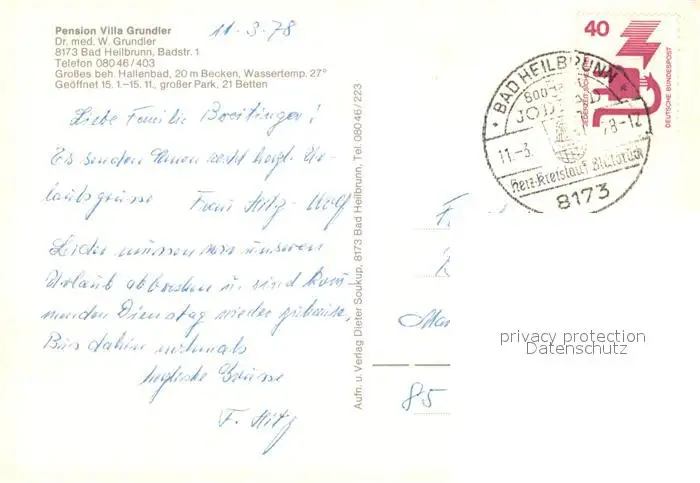 Pension Villa Grundler
Dr. med. W. Grundler
8173 Bad Heilbrunn, Badstr. 1
Telefon 08046/403
Großes beh. Hallenbad, 20 m Becken, Wassertemp. 27°
Geöffnet 15.1.–15.11, großer Park, 21 Betten
11-3-78
Liebe Familie Breitinger!
Es senden Ihnen recht herzl. Ur-
laubsgrüsse Frau Hitz-Wolf
Leider müssen wir unseren
Urlaub abbrechen u. sind kom-
menden Dienstag wieder zuhause,
Bis dahin nochmals
herzliche Grüsse
F. Hitz
Aufn. u. Verlag Dieter Soukup, 8173 Bad Heilbrunn, Tel. 08046/223
40
JEDERZEIT SICHERHEIT
DEUTSCHE BUNDESPOST
BAD HEILBRUNN
JODBAD
11.-3. 78-12
Herz-Kreislauf Blutdruck
8173
85
privacy protection
Datenschutz